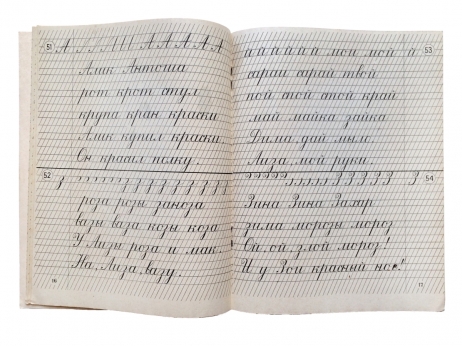 51 А А А А А А
Алик Антоша
рот крот стул
крупа кран краски
Алик купил краски.
Он красил полку.
52 з
роза розы заноза
вазы ваза козы коза
У Лизы роза и мак.
На, Лиза, вазу.
16
й й й й й й мои мой й 53
сараи сарай твой
пой спой стой край
май майка зайка
Дима, дай мыло.
Лиза, мой руки.
З З З З З З 54
Зина Зина Захар
зима морозы мороз
Ой, ой, злой мороз!
И у Зои красный нос!
17